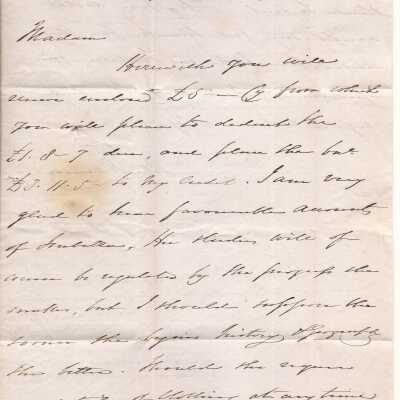 Madam
Herewith you will
receive enclosed £5 — Cy from which
you will please to deduct the
£1. 8 - 7 due, and place the bal.
£3. 11. 5 - to my credit. I am very
glad to hear favourable accounts
of Her studies will of
course be regulated by the progress she
makes, but I should suppose the
sooner she begins history & Geography
the better. Should she require
of clothing at any time